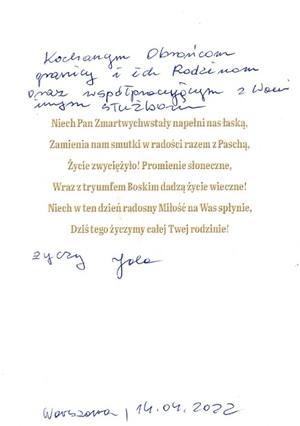 Kochanym Obrońcom
granicy i ich Rodzinom
oraz współpracującym z Wami
innym służbom
Niech Pan Zmartwychwstały napełni nas łaską,
Zamienia nam smutki w radości razem z Paschą,
Życie zwyciężyło! Promienie słoneczne,
Wraz z tryumfem Boskim dadzą życie wieczne!
Niech w ten dzień radosny Miłość na Was spłynie,
Dziś tego życzymy całej Twej rodzinie!
życzy Jola
Warszawa, 14.04.2022